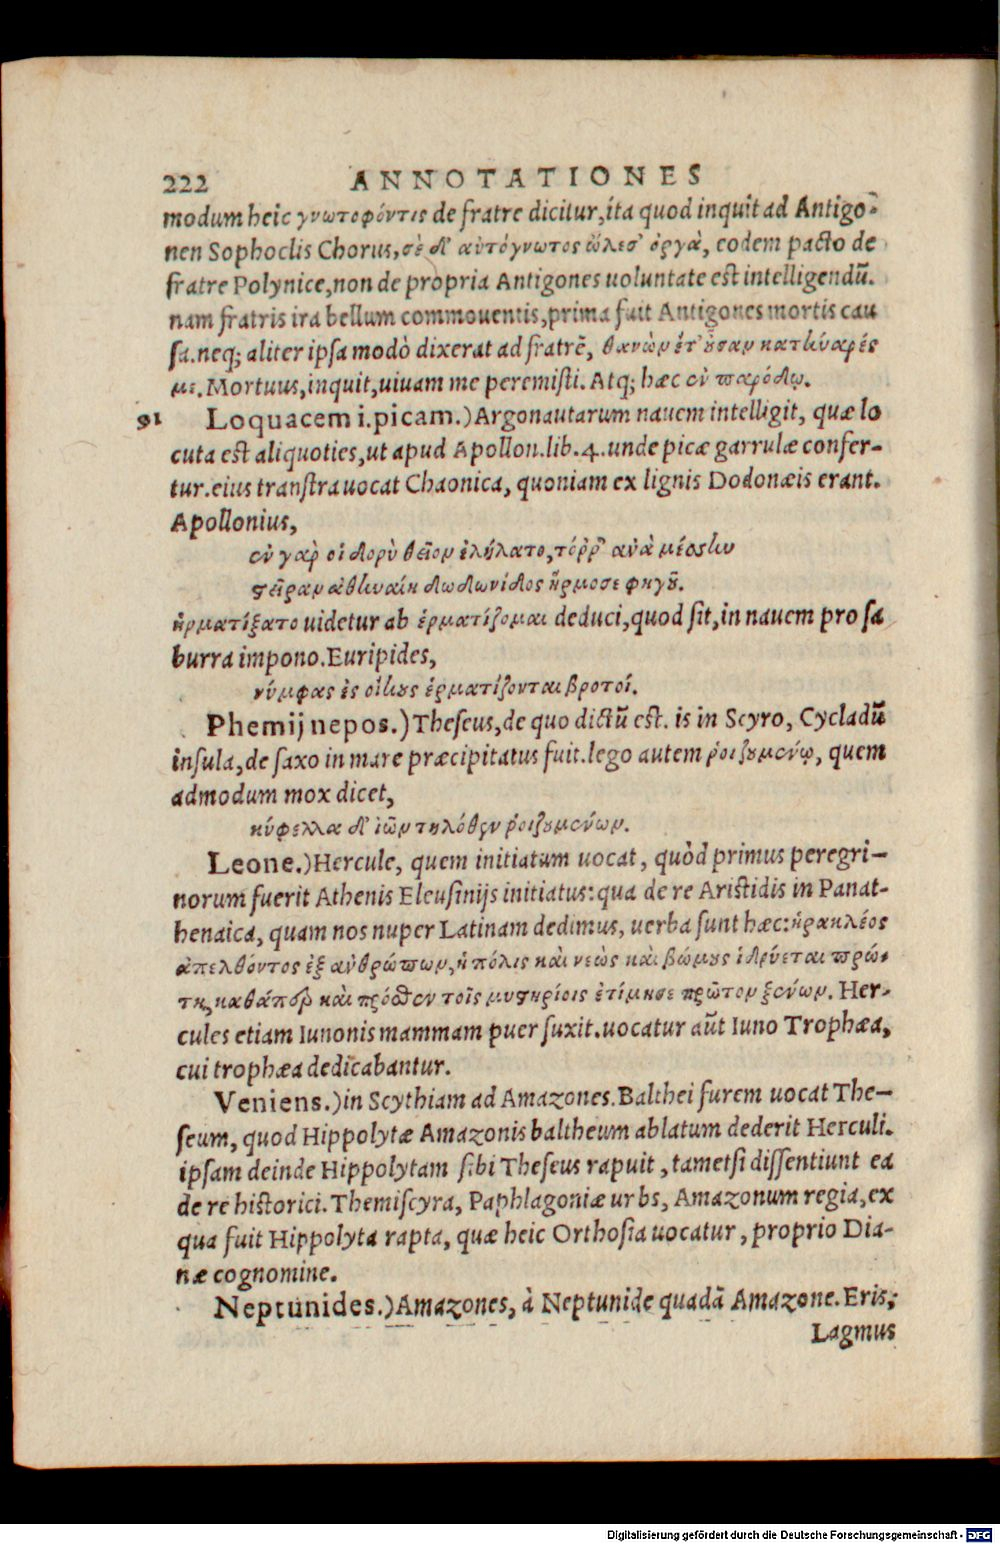 222 ANNOTATIONES
modum heic γνωτοφόντις de fratre dicitur, ita quod inquit ad Antigo-
nen Sophoclis Chorus, σὲ δ' αὐτόγνωτος ὤλεσ' ὀργὰ, eodem pacto de
fratre Polynice, non de propria Antigones uoluntate est intelligendū.
nam fratris ira bellum commouentis, prima fuit Antigones mortis cau
sa. neq; aliter ipsa modò dixerat ad fratrē, θανὼν ἔτ' οὖσαν κατήναρές
με. Mortuus, inquit, uiuam me peremisti. Atq; hæc ἐν παρόδῳ.
91 Loquacem i. picam.) Argonautarum nauem intelligit, quæ lo
cuta est aliquoties, ut apud Apollon. lib. 4. unde picæ garrulæ confer-
tur. eius transtra uocat Chaonica, quoniam ex lignis Dodonæis erant.
Apollonius,
ἐν γάρ οἱ δορὺ θεῖον ἐλήλατο, τόρρ' ἀνὰ μέσσην
στεῖραν ἀθηναίη δωδωνίδος ἥρμοσε φηγοῦ.
ἡρματίξατο uidetur ab ἑρματίζομαι deduci, quod sit, in nauem pro sa
burra impono. Euripides,
νύμφας ἐς οἴκους ἑρματίζονται βροτοί.
Phemij nepos.) Theseus, de quo dictū est. is in Scyro, Cycladū
insula, de saxo in mare præcipitatus fuit. lego autem ῥοιζουμένῳ, quem
admodum mox dicet,
κύφελλα δ' ἰῶν τηλόθεν ῥοιζουμένων.
Leone.) Hercule, quem initiatum uocat, quòd primus peregri-
norum fuerit Athenis Eleusinijs initiatus: qua de re Aristidis in Panat-
henaica, quam nos nuper Latinam dedimus, uerba sunt hæc: ἡρακλέος
ἀπελθόντος ἐξ ἀνθρώπων, ἡ πόλις καὶ νεὼς καὶ βώμους ἱδρύεται πρώ-
τη, καθάπερ καὶ πρόσθεν τοῖς μυστηρίοις ἐτίμησε πρῶτον ξένων. Her-
cules etiam Iunonis mammam puer suxit. uocatur aūt Iuno Trophæa,
cui trophæa dedicabantur.
Veniens.) in Scythiam ad Amazones. Balthei furem uocat The-
seum, quod Hippolytæ Amazonis baltheum ablatum dederit Herculi.
ipsam deinde Hippolytam sibi Theseus rapuit, tametsi dissentiunt ea
de re historici. Themiscyra, Paphlagoniæ urbs, Amazonum regia, ex
qua fuit Hippolyta rapta, quæ heic Orthosia uocatur, proprio Dia-
næ cognomine.
Neptunides.) Amazones, à Neptunide quadā Amazone. Eris,
Lagmus
Digitalisierung gefördert durch die Deutsche Forschungsgemeinschaft - DFG